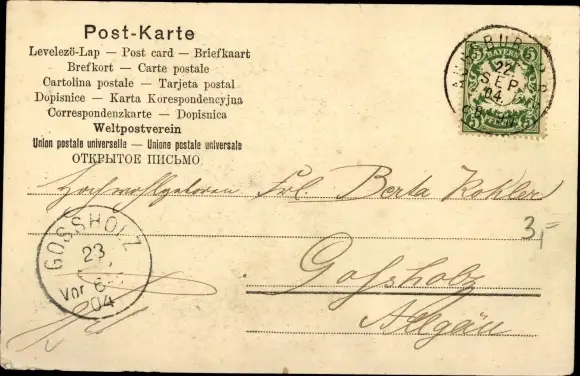 Post-Karte
Levelezö-Lap — Post card — Briefkaart
Brefkort — Carte postale
Cartolina postale — Tarjeta postal
Dopisnice — Karta Korespondencyjna
Correspondenzkarte — Dopisnica
Weltpostverein
Union postale universelle — Unione postale universale
ОТКРЫТОЕ ПИСЬМО
5 BAYERN 5
AUGSBURG
22.
SEP.
04.
Hochwohlgeboren Frl Berta Kohler
3,-
GOSSHOLZ
23
Vor 6-
04
Goßholz
Allgäu